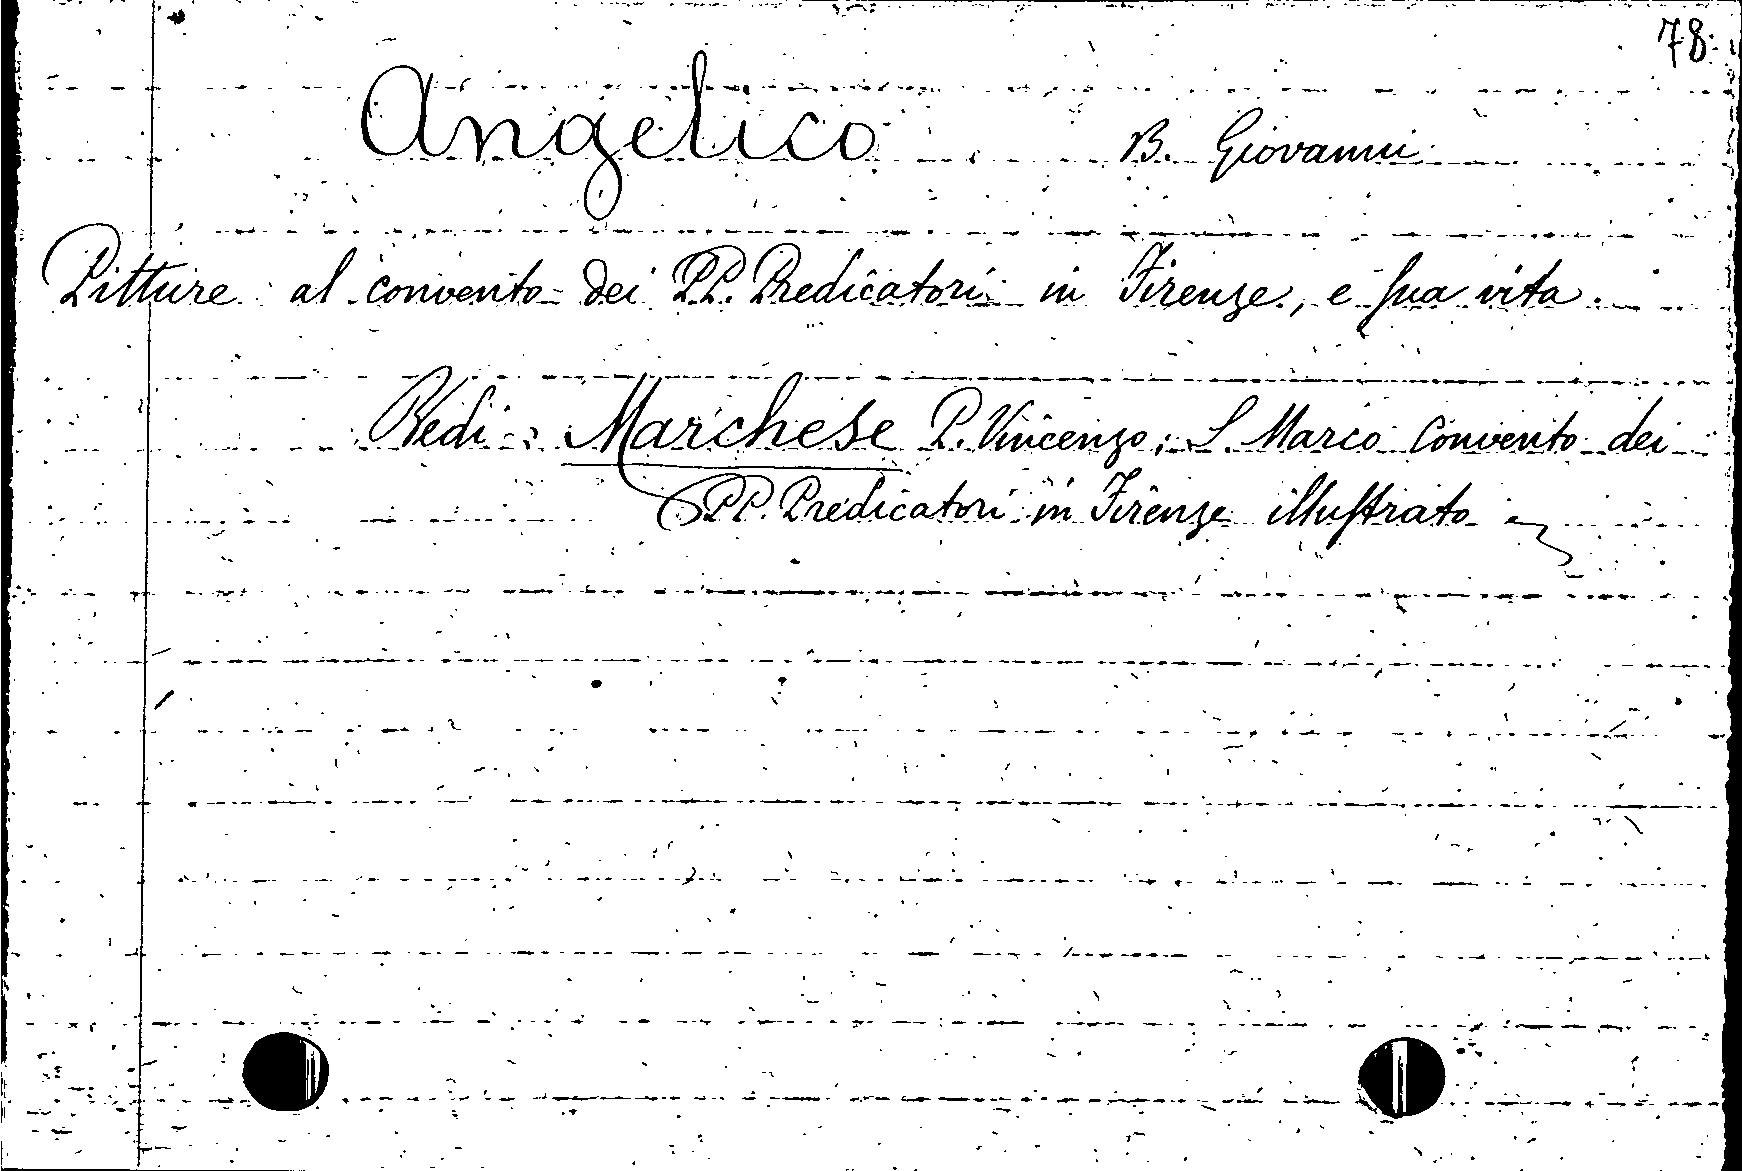 78.
Angelico B. Giovanni
Pitture al convento dei PP. Predicatori in Firenze, e sua vita.
Vedi: Marchese P. Vincenzo: S. Marco Convento dei
PP. Predicatori in Firenze illustrato